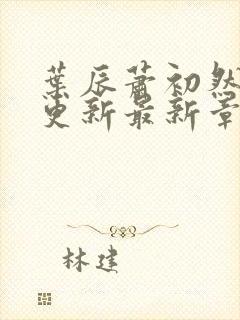 葉辰蕭初然
更新最新章
林建